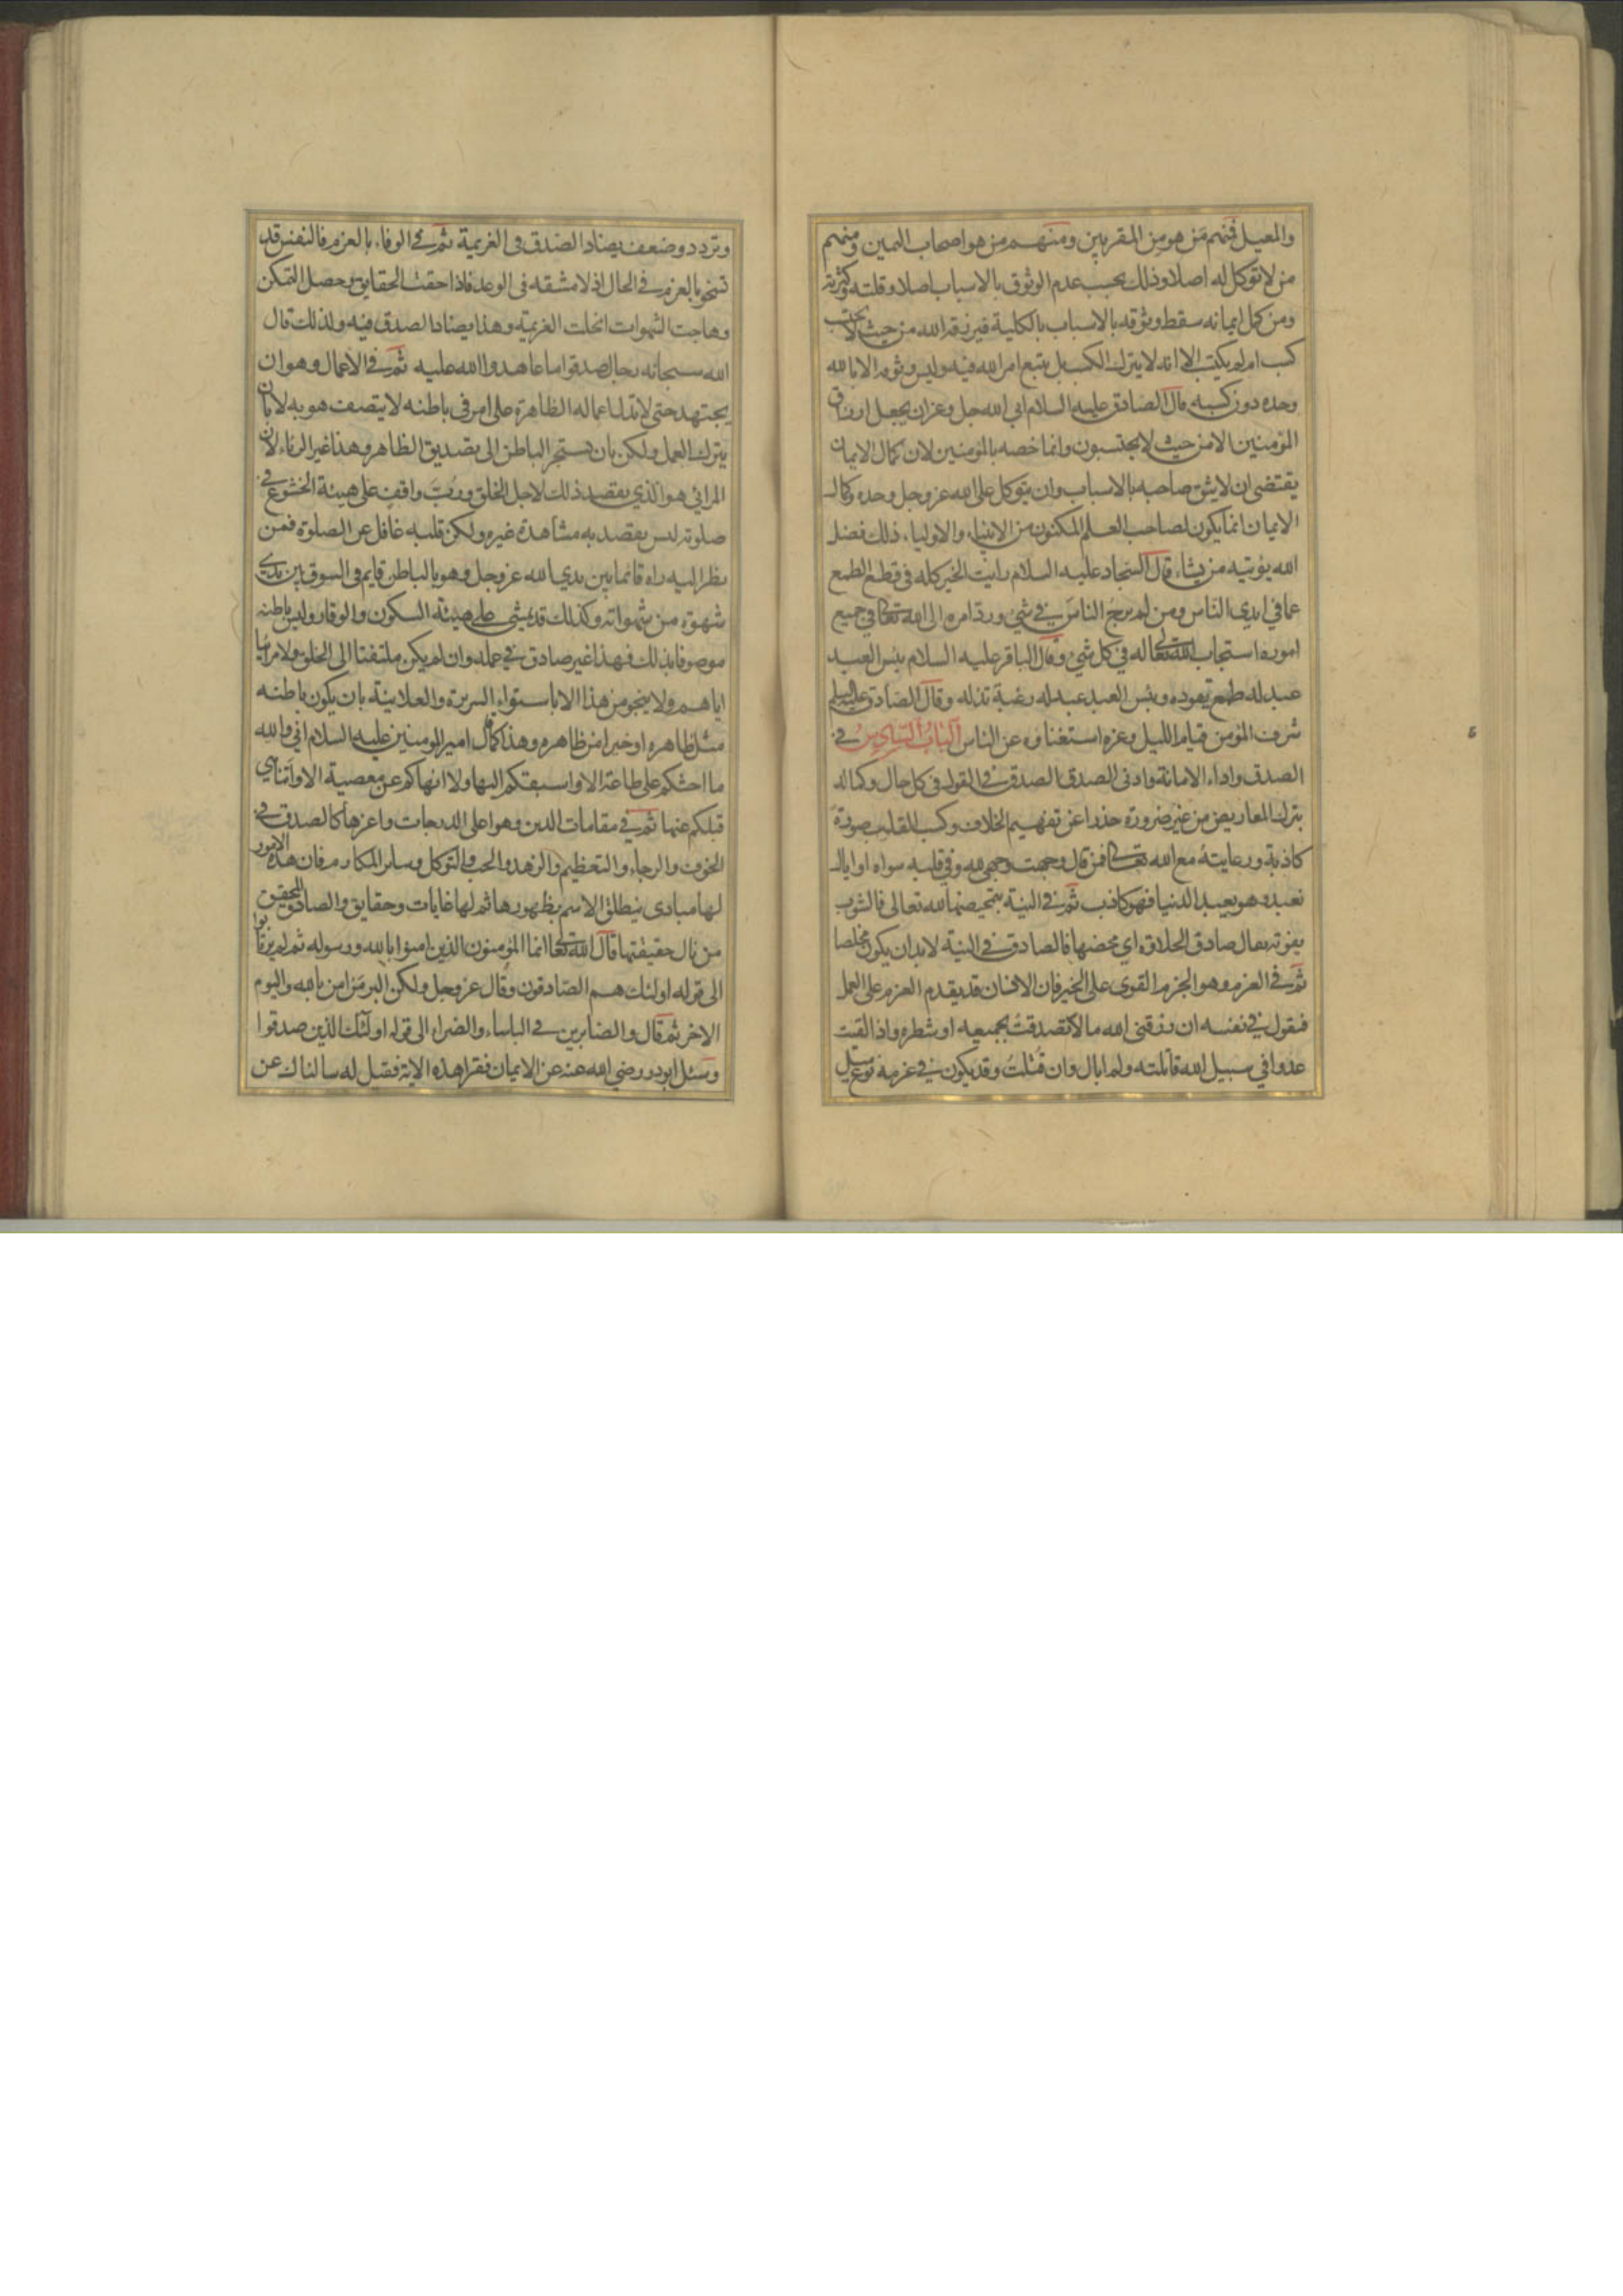 والمعيل فمنهم من هو من المقربين ومنهم من هو اصحاب اليمين ومنهم
من لا توكل له اصلا وذلك بحسب عدم الوثوق بالاسباب اصلا وقلته وكثرته
ومن كمل ايمانه سقط وثوقه بالاسباب بالكلية فيرزقه الله من حيث لا يحتسب
كسب ام لم يكتسب الا انه لا يترك الكسب بل يتبع امر الله فيه وليس وثوقه الا بالله
وحده دون كسبه قال الصادق عليه السلام ابى الله جل وعز ان يجعل ارزاق
المؤمنين الا من حيث لا يحتسبون وانما خصه بالمؤمنين لان كمال الايمان
يقتضى ان لا يثق صاحبه بالاسباب وان يتوكل على الله عز وجل وحده وكمال
الايمان انما يكون لصاحب العلم المكنون من الانبياء والاولياء ذلك فضل
الله يؤتيه من يشاء قال السجاد عليه السلام رايت الخير كله فى قطع الطمع
عما في ايدى الناس ومن لم يرج الناس في شئ ورد امره الى الله تعالى في جميع
اموره استجاب الله تعالى له في كل شئ وقال الباقر عليه السلام بئس العبد
عبد له طمع يقوده وبئس العبد عبد له رغبة تذله وقال الصادق عليه السلم
شرف المؤمن قيام الليل وعزه استغناؤه عن الناس الباب السادس في
الصدق واداء الامانة وادنى الصدق الصدق في القول فى كل حال وكماله
بترك المعاريض من غير ضرورة حذرا عن تفهيم الخلاف وكسب القلب صورة
كاذبة ورعايته مع الله تعالى فمن قال وجهت وجهى لله وفي قلبه سواه او اياك
نعبد وهو يعبد الدنيا فهو كاذب ثم في النية بتمحيضها لله تعالى فالشوب
يفوته يقال صادق الحلاوة اي محضها فالصادق في النية لابد ان يكون مخلصا
ثم في العزم وهو الجزم القوى على الخير فان الانسان قد يقدم العزم على العمل
فيقول في نفسه ان رزقنى الله مالا تصدقت بجميعه او شطره واذا لقيت
عدوا في سبيل الله قاتلته ولم ابال وان قتلت وقد يكون في عزمه نوع ميل
وتردد وضعف يضاد الصدق فى العزيمة ثم في الوفاء بالعزم فالنفس قد
تسخو بالعزم في الحال اذ لا مشقه فى الوعد فاذا حقت الحقايق وحصل التمكن
وهاجت الشهوات انحلت العزيمة وهذا يضاد الصدق فيه ولذلك قال
الله سبحانه رجال صدقوا ما عاهدوا الله عليه ثم في الاعمال وهو ان
يجتهد حتى لا تدل اعماله الظاهرة على امر فى باطنه لا يتصف هو به لا بان
يترك العمل ولكن بان يستجر الباطن الى تصديق الظاهر وهذا غير الرئاء لان
المرائي هو الذي يقصد ذلك لاجل الخلق ورب واقف على هيئة الخشوع في
صلوته ليس يقصد به مشاهدة غيره ولكن قلبه غافل عن الصلوة فمن
نظر اليه راه قائما بين يدي الله عز وجل وهو بالباطن قايم فى السوق بين يدى
شهوة من شهواته وكذلك قد يمشى على هيئة السكون والوقار وليس باطنه
موصوفا بذلك فهذا غير صادق في عمله وان لم يكن ملتفتا الى الخلق ولا مرائيا
اياهم ولا ينجو من هذا الا باستواء السريرة والعلانية بان يكون باطنه
مثل ظاهره او خيرا من ظاهره وهذا كما قال امير المومنين عليه السلام اني والله
ما احثكم على طاعة الا واسبقكم اليها ولا انهاكم عن معصية الا واتناهى
قبلكم عنها ثم في مقامات الدين وهو اعلى الدرجات واعزها كالصدق في
الخوف والرجاء والتعظيم والزهد والحب والتوكل وسائر المكارم فان هذه الامور
لها مبادى ينطلق الاسم بظهورها ثم لها غايات وحقايق والصادق المحقق
من نال حقيقتها قال الله تعالى انما المؤمنون الذين امنوا بالله ورسوله ثم لم يرتابوا
الى قوله اولئك هم الصادقون وقال عز وجل ولكن البر من امن بالله واليوم
الاخر ثم قال والصابرين في الباساء والضراء الى قوله اولئك الذين صدقوا
وسئل ابوذر رضي الله عنه عن الايمان فقرا هذه الاية فقيل له سالناك عن